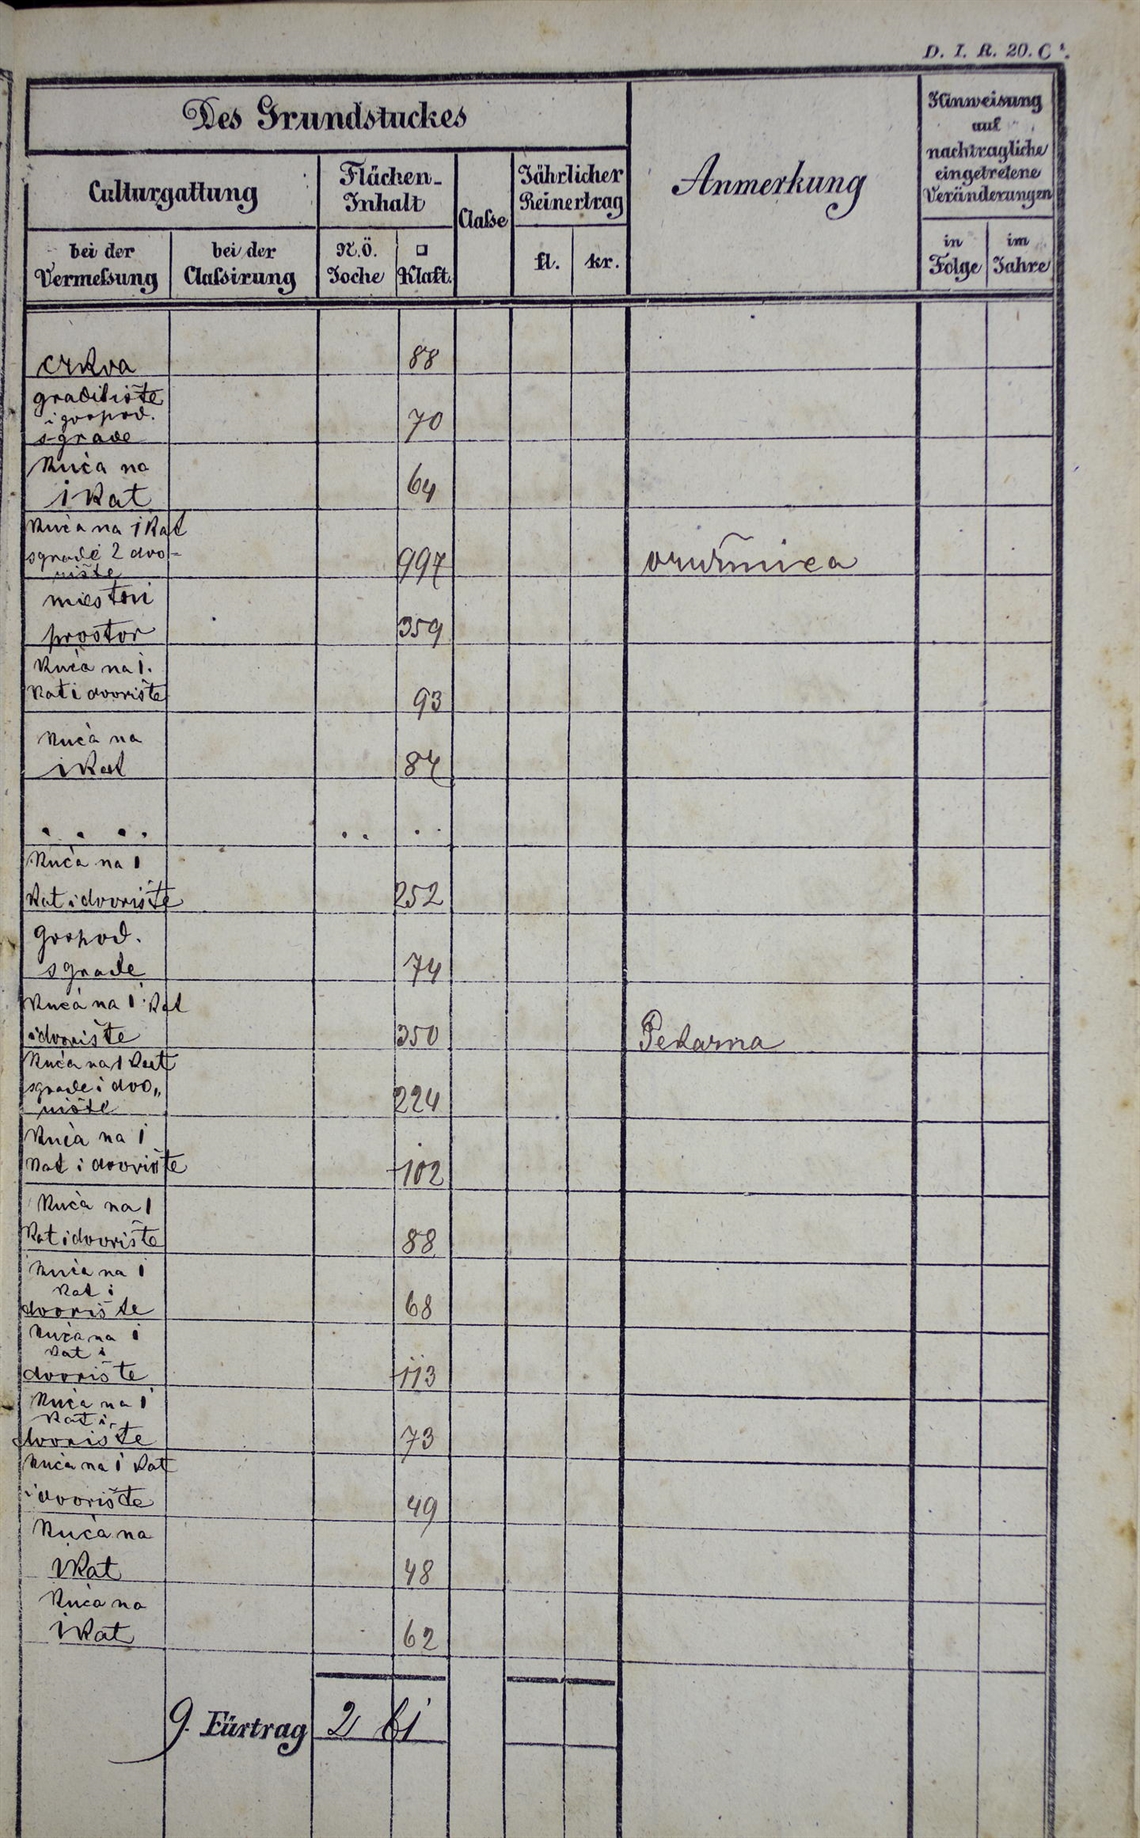 D. I. R. 20. C
Des Grundstuckes
Culturgattung
bei der
Vermeßung
bei der
Claßirung
Flächen-
Inhalt
N.Ö.
Joche
□
Klaft.
Claße
Jährlicher
Reinertrag
fl.
kr.
Anmerkung
Hinweisung
auf
nachtragliche
eingetretene
Veränderungen
in
Folge
im
Jahre
crkva 88
gradilište
i gospod.
sgrade 70
Kuća na
1 Kat 64
Kuća na 1 Kat
sgrade 2 dvo-
rište 997 oružnica
miestni
prostor 359
Kuća na 1.
Kat i dvorište 93
Kuća na
1 Kat 84
. . . . . . . .
Kuća na 1
Kat i dvorište 252
gospod.
sgrade 74
Kuća na 1 Kat
i dvorište 350 Pekarna
Kuća na 1 Kat
sgrade i dvo„
rište 224
Kuća na 1
Kat i dvorište 102
Kuća na 1
Kat i dvorište 88
Kuća na 1
Kat i
dvorište 68
Kuća na 1
Kat i
dvorište 113
Kuća na 1
Kat i
dvorište 73
Kuća na 1 Kat
i dvorište 49
Kuća na
1 Kat 48
Kuća na
1 Kat 62
9. Fürtrag 2